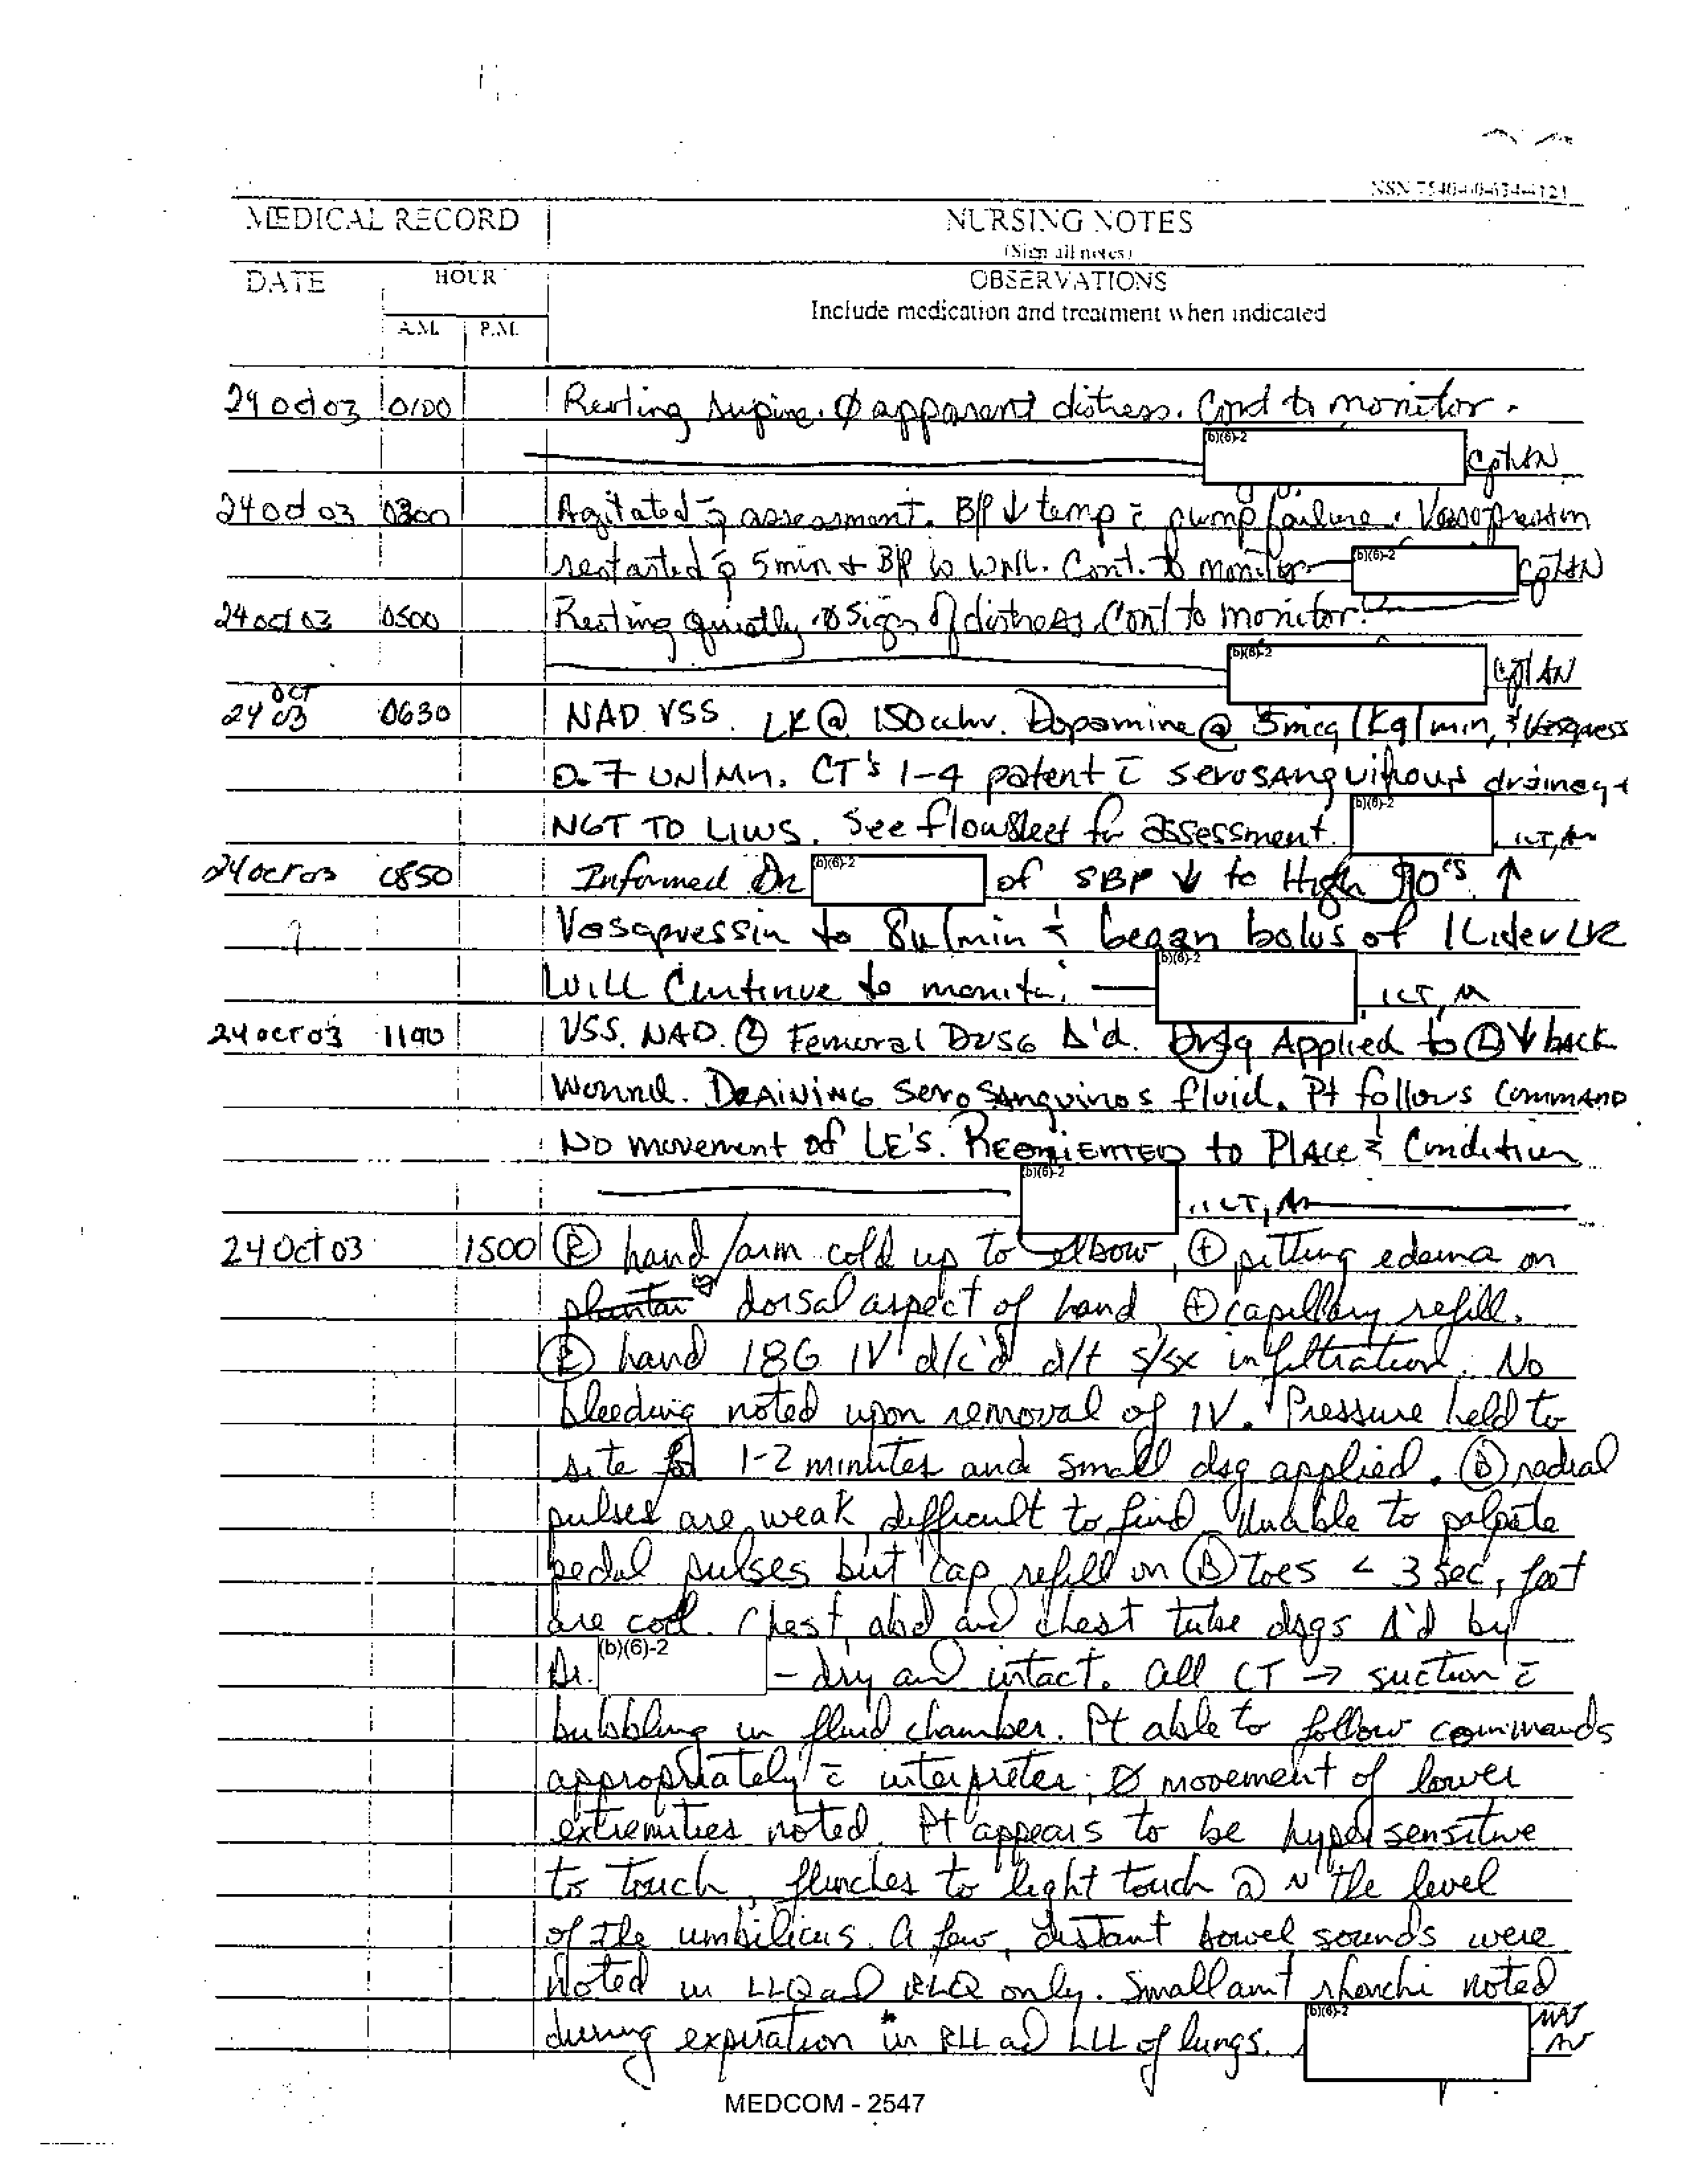 NSN 7540-00-634-4121
MEDICAL RECORD NURSING NOTES
(Sign all notes)
DATE HOUR OBSERVATIONS
Include medication and treatment when indicated
A.M. P.M.
24 Oct 03 0100 Resting supine. Ø apparent distress. Cont to monitor.
(b)(6)-2 CPT AN
24 Oct 03 0300 Agitated p̄ assessment. B/P ↓ temp c̄ pump failure. Vasopressin
restarted p̄ 5 min + B/P to WNL. Cont. to monitor (b)(6)-2 CPT AN
24 Oct 03 0500 Resting quietly. Ø signs of distress. Cont to monitor.
(b)(6)-2 CPT AN
24 OCT 03 0630 NAD VSS. LR @ 150cc/hr. Dopamine @ 5mcg/Kg/min, & Vasopress
0.7 UN/MN. CT's 1-4 patent c̄ serosanguinous drainage
NGT TO LIWS. See flowsheet for assessment. (b)(6)-2 1LT, AN
24 OCT 03 0850 Informed Dr (b)(6)-2 of SBP ↓ to High 90's ↑
Vasopressin to 8u/min & began bolus of 1 Liter LR
WILL Continue to monitor. (b)(6)-2 1LT, AN
24 OCT 03 1100 VSS. NAD. Ⓛ Femoral DRSG Δ'd. Drsg Applied to Ⓛ ↓ back
Wound. DRAINING SeroSanguinos fluid. Pt follows COMMAND
No movement of LE's. REORIENTED to PLACE & Condition
(b)(6)-2 1LT, AN
24 Oct 03 1500 Ⓡ hand/arm cold up to elbow, ⊕ pitting edema on
plantar dorsal aspect of hand, ⊕ capillary refill.
Ⓡ hand 18G IV d/c'd d/t s/sx infiltration. No
bleeding noted upon removal of IV. Pressure held to
site for 1-2 minutes and small dsg applied. Ⓑ radial
pulses are weak, difficult to find. Unable to palpate
pedal pulses but cap refill on Ⓑ toes < 3 sec, feet
are cool. Chest, abd and chest tube dsgs Δ'd by
Dr. (b)(6)-2 - dry and intact. All CT → suction c̄
bubbling in fluid chamber. Pt able to follow commands
appropriately c̄ interpreter; Ø movement of lower
extremities noted. Pt appears to be hypersensitive
to touch, flinches to light touch @ ~ the level
of the umbilicus. A few, distant bowel sounds were
noted in LLQ and RLQ only. Small amt rhonchi noted
during expiration in RLL ad LLL of lungs. (b)(6)-2 AN
MEDCOM - 2547